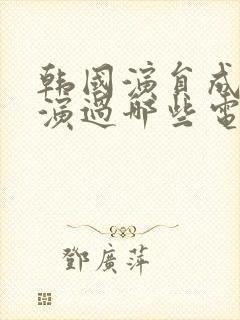 韩國演員成
演過哪些電
鄧廣萍